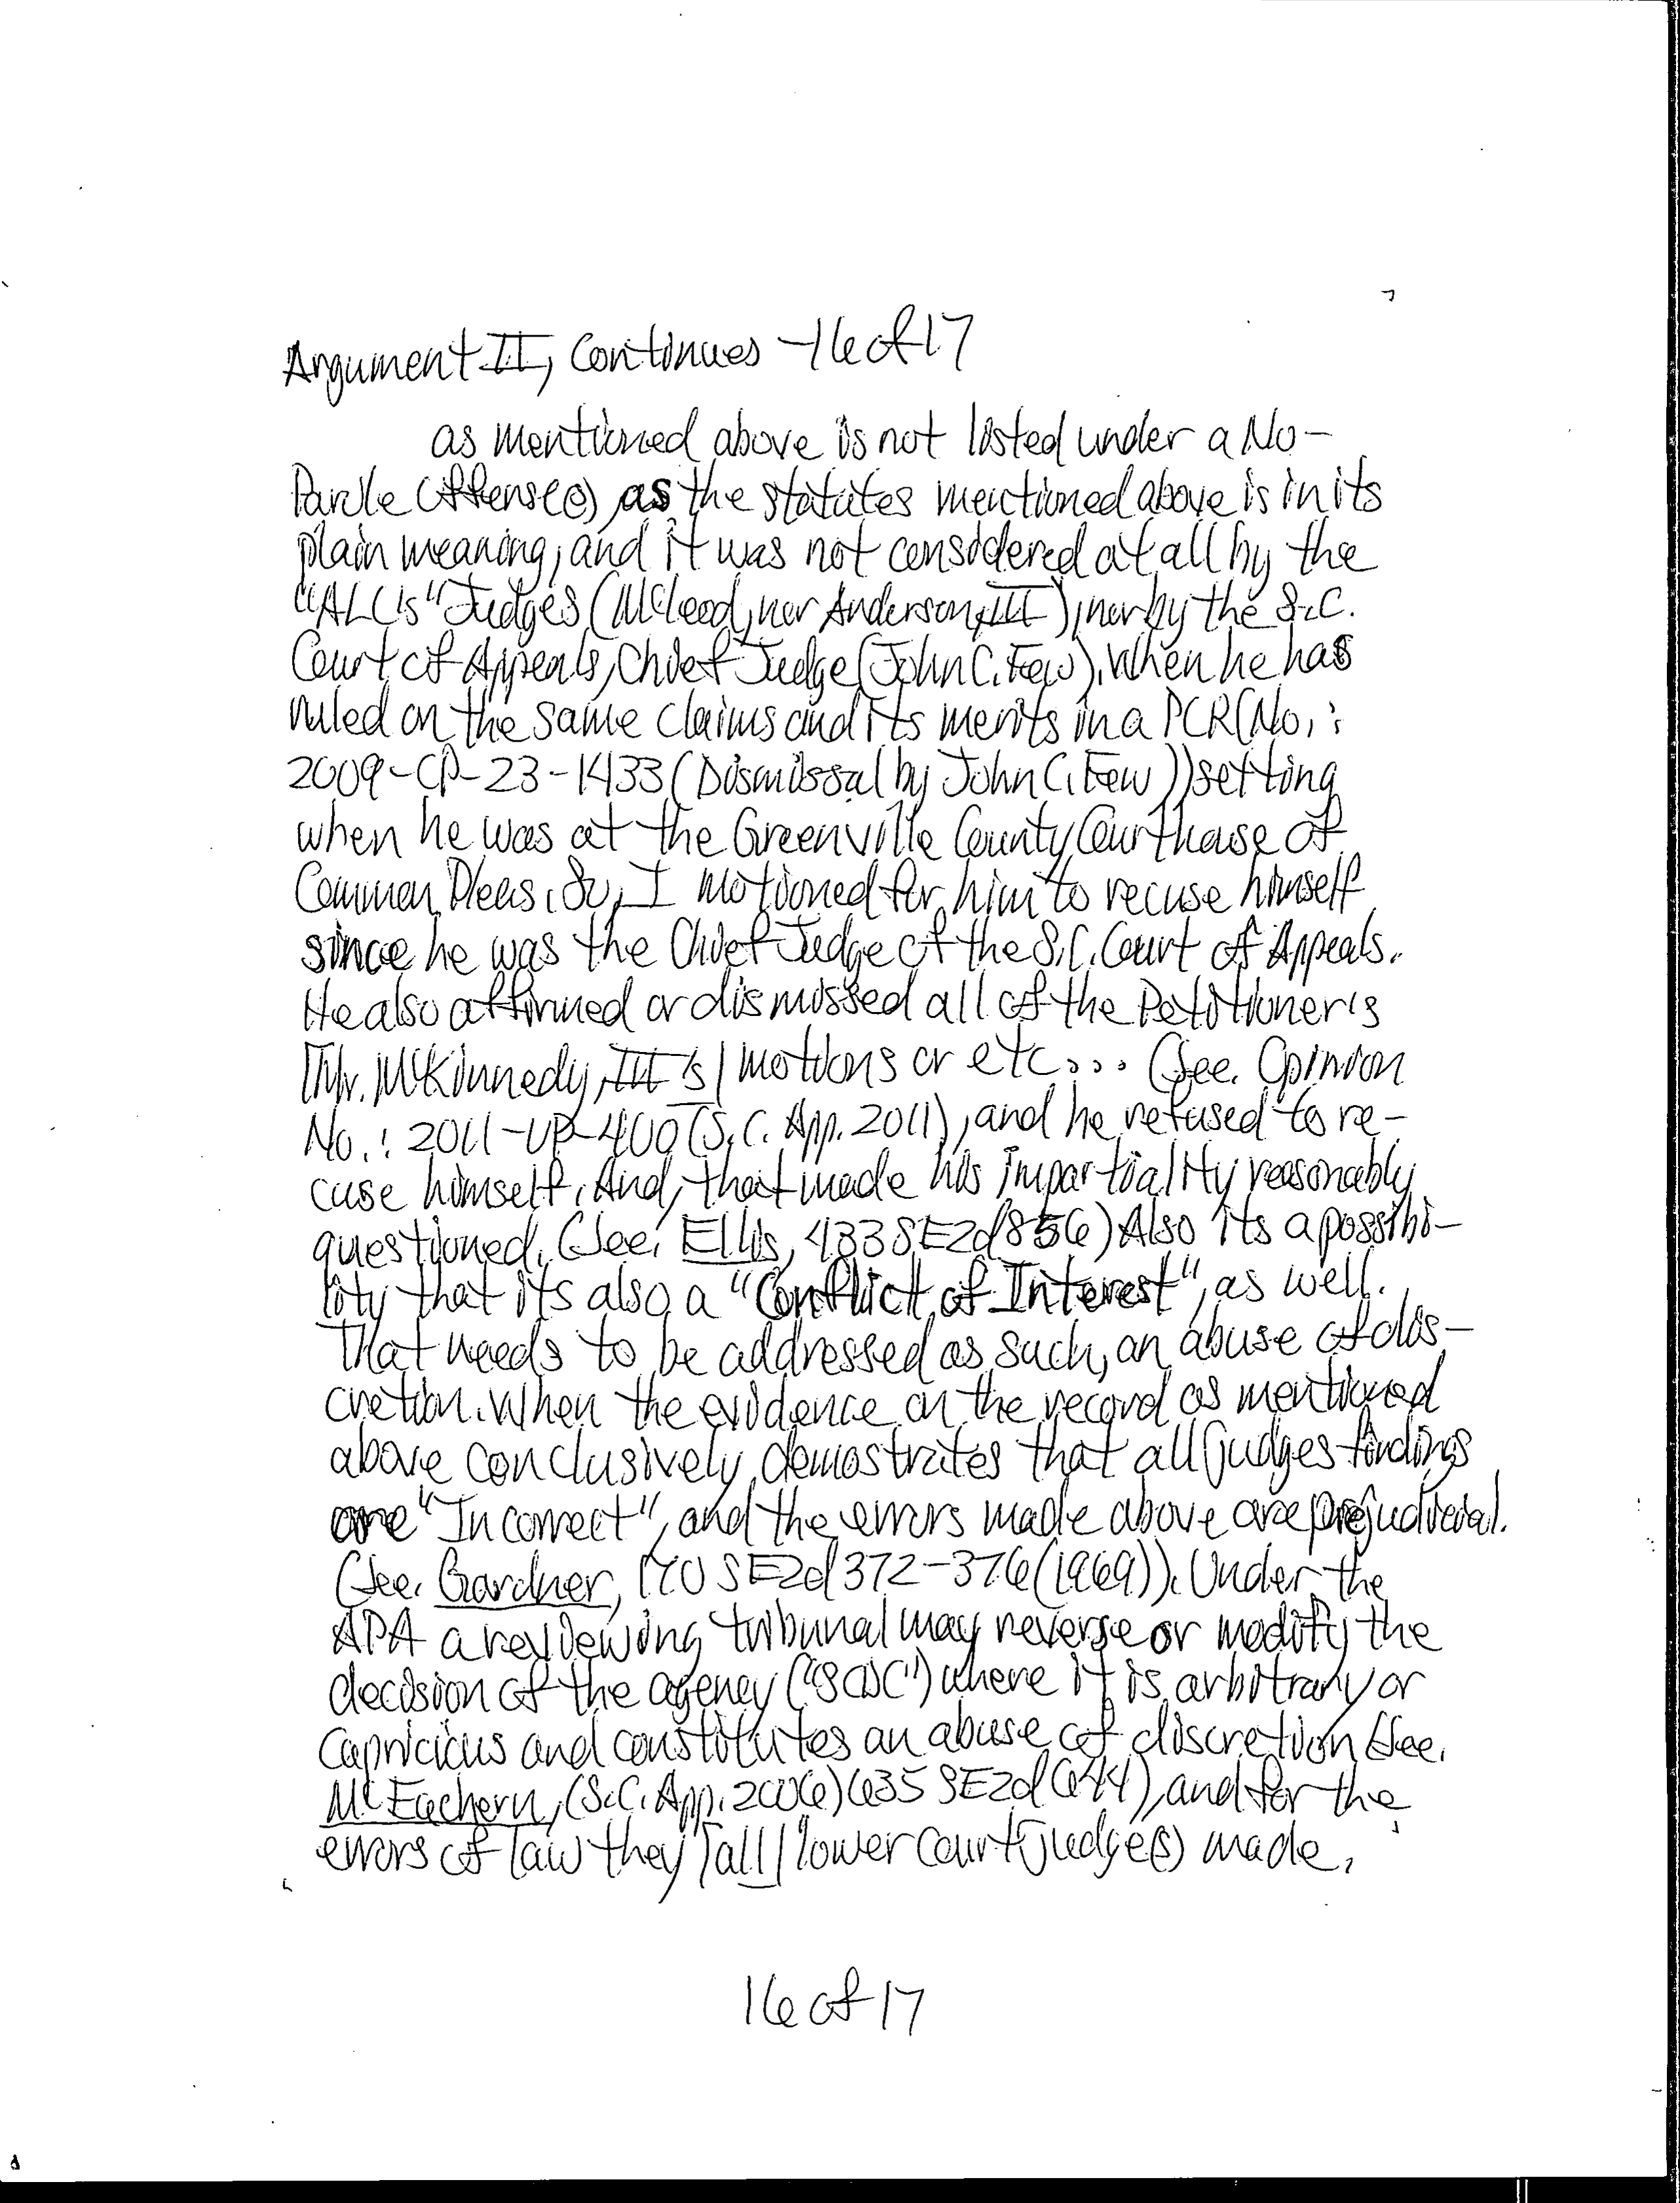 Argument II, Continues -16 of 17
as mentioned above is not listed under a No-
Parole Offense(s), as the statutes mentioned above is in its
plain meaning, and it was not considered at all by the
"ALC's" Judges (McLeod, nor Anderson, III), nor by the S.C.
Court of Appeals, Chief Judge (John C. Few). When he has
ruled on the same claims and its merits in a PCR (No.:
2009-CP-23-1433 (Dismissal by John C. Few)) setting
when he was at the Greenville County Courthouse of
Common Pleas. So, I motioned for him to recuse himself
since he was the Chief Judge of the S.C. Court of Appeals.
He also affirmed or dismissed all of the Petitioner's
/Mr. McKinnedy, III's/ motions or etc... (See. Opinion
No.: 2011-UP-400 (S.C. App. 2011), and he refused to re-
cuse himself. And, that made his impartiality reasonably
questioned. (See. Ellis, 433 SE2d 856) Also its a possibi-
lity that its also a "Conflict of Interest", as well.
That needs to be addressed as such, an abuse of dis-
cretion. When the evidence on the record as mentioned
above conclusively demostrates that all judges findings
are "Incorrect", and the errors made above are prejudicial.
(See. Gardner, 170 SE2d 372-376 (1969)). Under the
APA a reviewing tribunal may reverse or modify the
decision of the agency ("SCDC") where it is arbitrary or
capricious and constitutes an abuse of discretion (See.
McEachern, (S.C. App. 2006) 635 SE2d 644), and for the
errors of law they /all/ lower court judge(s) made.
16 of 17